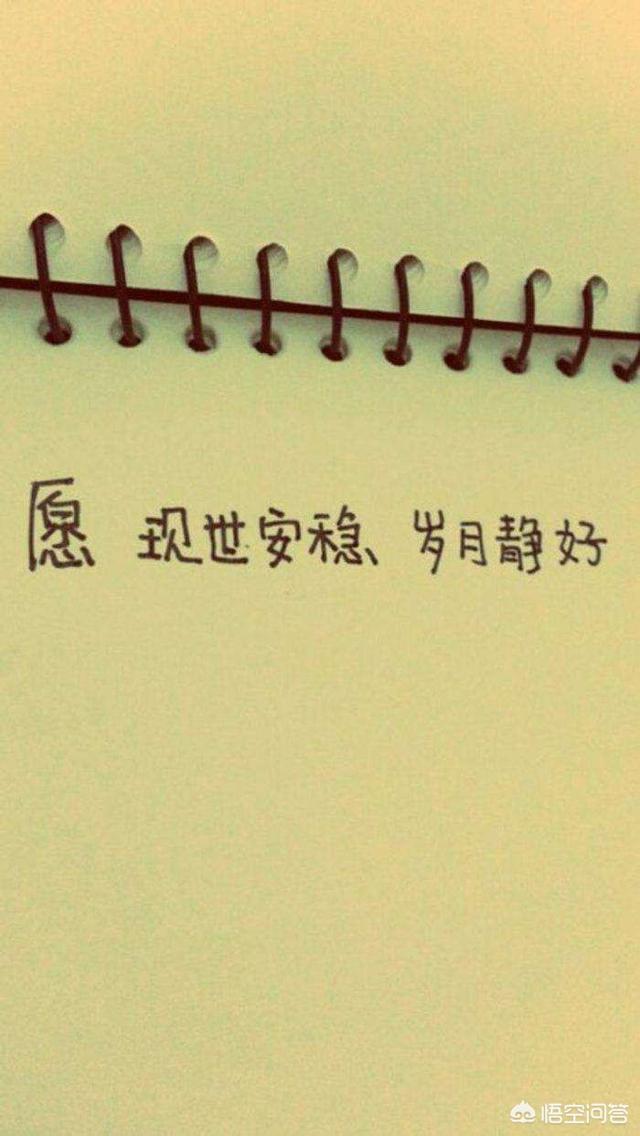 愿 现世安稳、岁月静好
悟空问答